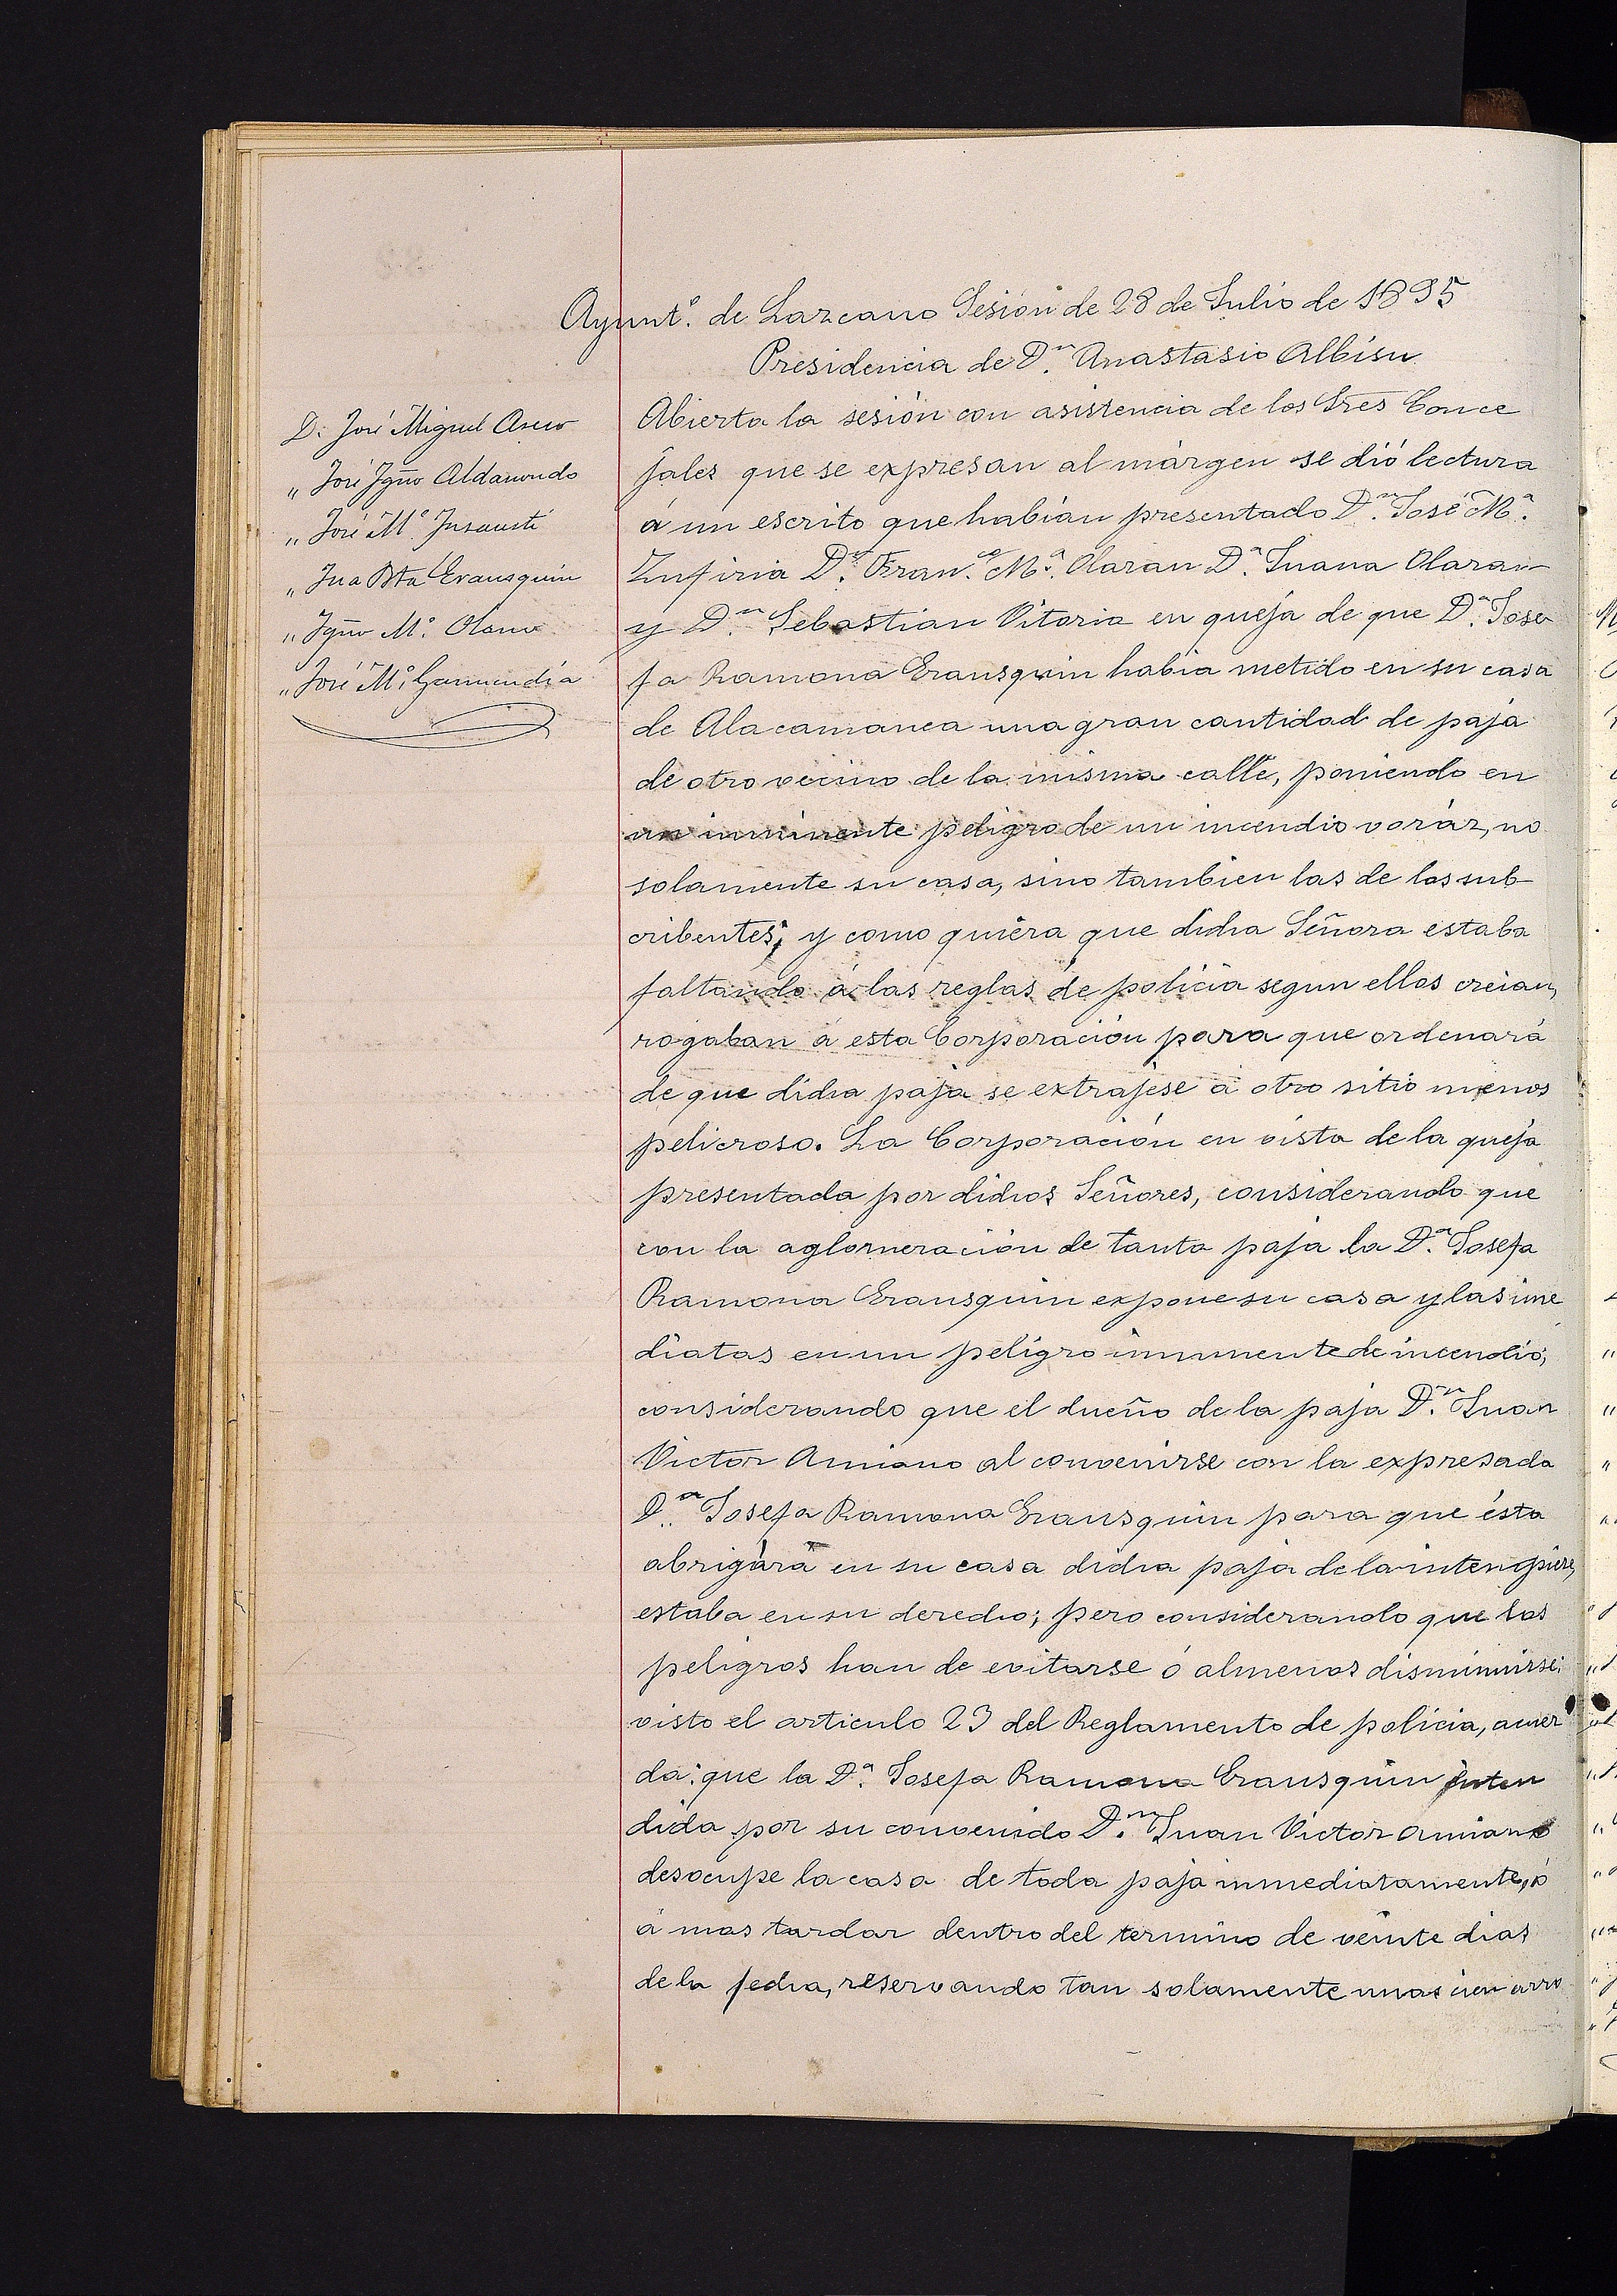 Ayunt.º de Lazcano Sesión de 28 de Julio de 1895
Presidencia de D.ⁿ Anastasio Albisu
D. José Miguel Aseco
„ José Ygño Aldasoro
„ José M.ª Insausti
„ Jua Bta Erausquin
„ Ygño M.ª Olano
„ José M.ª Garmendia
Abierta la sesión con asistencia de los Sres Conce
jales que se expresan al márgen se dió lectura
á un escrito que habían presentado D.ⁿ José M.ª
Zufiria D.ⁿ Fran.co M.ª Olaran D.ª Juana Olaran
y D.ⁿ Sebastian Vitoria en queja de que D.ª Jose
fa Ramona Erausquin habia metido en su casa
de Alacamanea una gran cantidad de paja
de otro vecino de la misma calle, poniendo en
un inminente peligro de un incendio voráz, no
solamente su casa, sino tambien las de los sub
cribentes; y como quiera que dicha Señora estaba
faltando á las reglas de policia segun ellos creian,
rogaban á esta Corporación para que ordenará
de que dicha paja se extrajese á otro sitio menos
pelicroso. La Corporación en vista de la queja
presentada por dichos Señores, considerando que
con la aglomeración de tanta paja la D.ª Josefa
Ramona Erausquin expone su casa y las ime
diatas en un peligro inminente de incendio;
considerando que el dueño de la paja D.ⁿ Juan
Victor Amiano al convenirse con la expresada
D.ª Josefa Ramona Erausquin para que ésta
abrigára en su casa dicha paja de la intemperie,
estaba en su derecho; pero considerando que los
peligros han de evitarse ó almenos disminuirse;
visto el articulo 23 del Reglamento de policia, acuer
da: que la D.ª Josefa Ramona Erausquin enten
dida por su convenido D.ⁿ Juan Victor Amiano
desocupe la casa de toda paja inmediatamente, ó
á mas tardar dentro del termino de veinte dias
de la fecha, reservando tan solamente unas cien arro